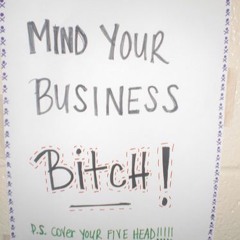 MIND YOUR
BUSINESS
BitcH!
P.S. COVER YOUR FIVE HEAD!!!!!